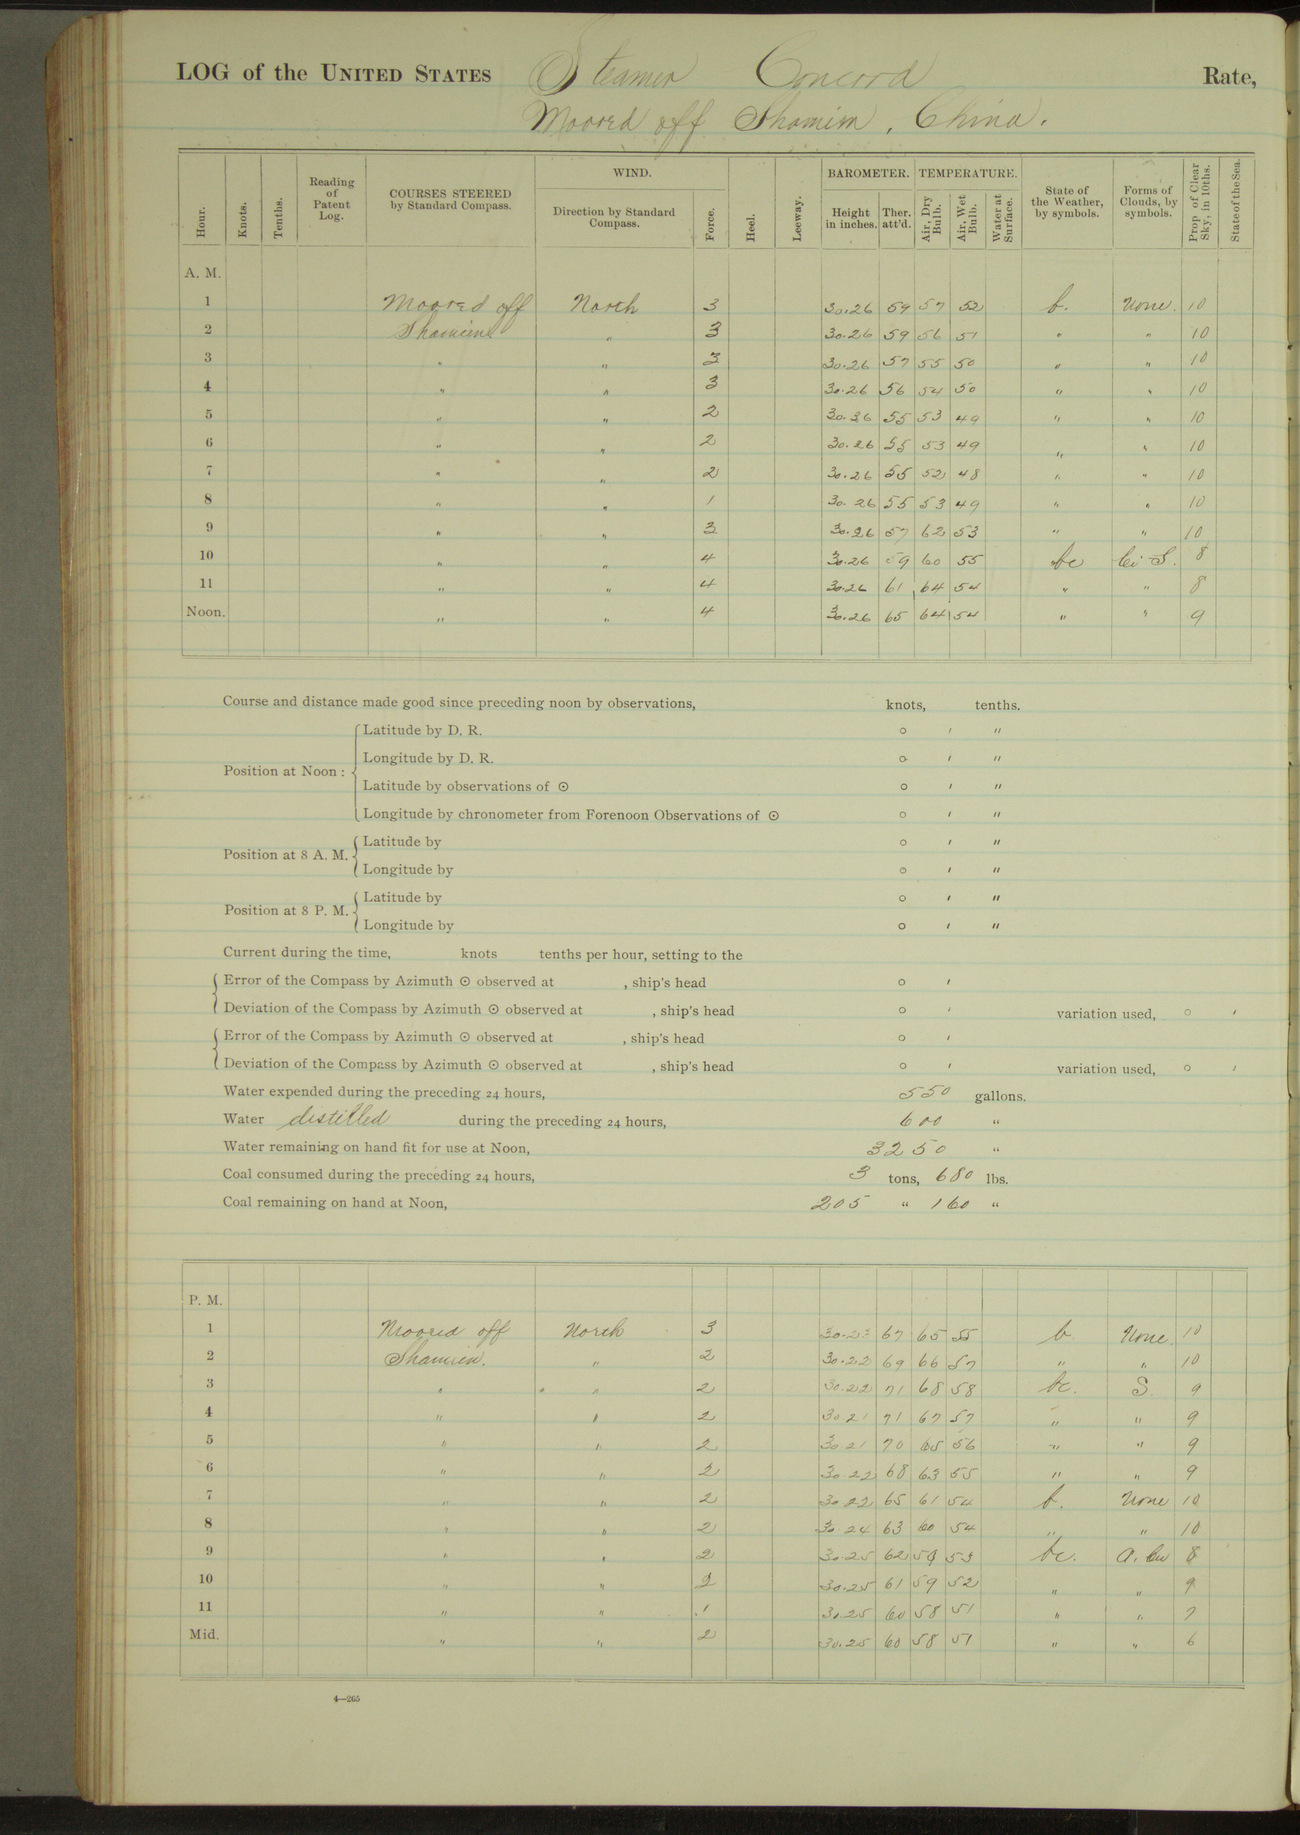 LOG of the UNITED STATES Steamer Concord Rate,
Moored off Shamien, China.
Hour. Knots. Tenths. Reading of Patent Log. COURSES STEERED by Standard Compass. WIND. Direction by Standard Compass. Force. Heel. Leeway. BAROMETER. Height in inches. Ther. att'd. TEMPERATURE. Air, Dry Bulb. Air, Wet Bulb. Water at Surface. State of the Weather, by symbols. Forms of Clouds, by symbols. Prop of Clear Sky, in 10ths. State of the Sea.
A. M.
1 Moored off North 3 30.26 59 57 52 b. None. 10
2 Shamien " 3 30.26 59 56 51 " " 10
3 " " 3 30.26 57 55 50 " " 10
4 " " 3 30.26 56 54 50 " " 10
5 " " 2 30.26 55 53 49 " " 10
6 " " 2 30.26 55 53 49 " " 10
7 " " 2 30.26 55 52 48 " " 10
8 " " 1 30.26 55 53 49 " " 10
9 " " 3 30.26 57 62 53 " " 10
10 " " 4 30.26 59 60 55 bc Ci-S. 8
11 " " 4 30.26 61 64 54 " " 8
Noon. " " 4 30.26 65 64 54 " " 9
Course and distance made good since preceding noon by observations, knots, tenths.
Position at Noon: Latitude by D. R. ° ' "
Longitude by D. R. ° ' "
Latitude by observations of ⊙ ° ' "
Longitude by chronometer from Forenoon Observations of ⊙ ° ' "
Position at 8 A. M. Latitude by ° ' "
Longitude by ° ' "
Position at 8 P. M. Latitude by ° ' "
Longitude by ° ' "
Current during the time, knots tenths per hour, setting to the
Error of the Compass by Azimuth ⊙ observed at , ship's head ° '
Deviation of the Compass by Azimuth ⊙ observed at , ship's head ° ' variation used, ° '
Error of the Compass by Azimuth ⊙ observed at , ship's head ° '
Deviation of the Compass by Azimuth ⊙ observed at , ship's head ° ' variation used, ° '
Water expended during the preceding 24 hours, 550 gallons.
Water distilled during the preceding 24 hours, 600 "
Water remaining on hand fit for use at Noon, 3250 "
Coal consumed during the preceding 24 hours, 3 tons, 680 lbs.
Coal remaining on hand at Noon, 205 " 160 "
P. M.
1 Moored off North 3 30.23 67 65 55 b None. 10
2 Shamien. " 2 30.22 69 66 57 " " 10
3 " " 2 30.22 71 68 58 bc. S. 9
4 " " 2 30 21 71 67 57 " " 9
5 " " 2 30 21 70 65 56 " " 9
6 " " 2 30 22 68 63 55 " " 9
7 " " 2 30 22 65 61 54 b. None 10
8 " " 2 30 24 63 60 54 " " 10
9 " " 2 30.25 62 59 53 bc. A. Cu 8
10 " " 2 30.25 61 59 52 " " 9
11 " " 1 30.25 60 58 51 " " 7
Mid. " " 2 30.25 60 58 51 " " 6
4—265